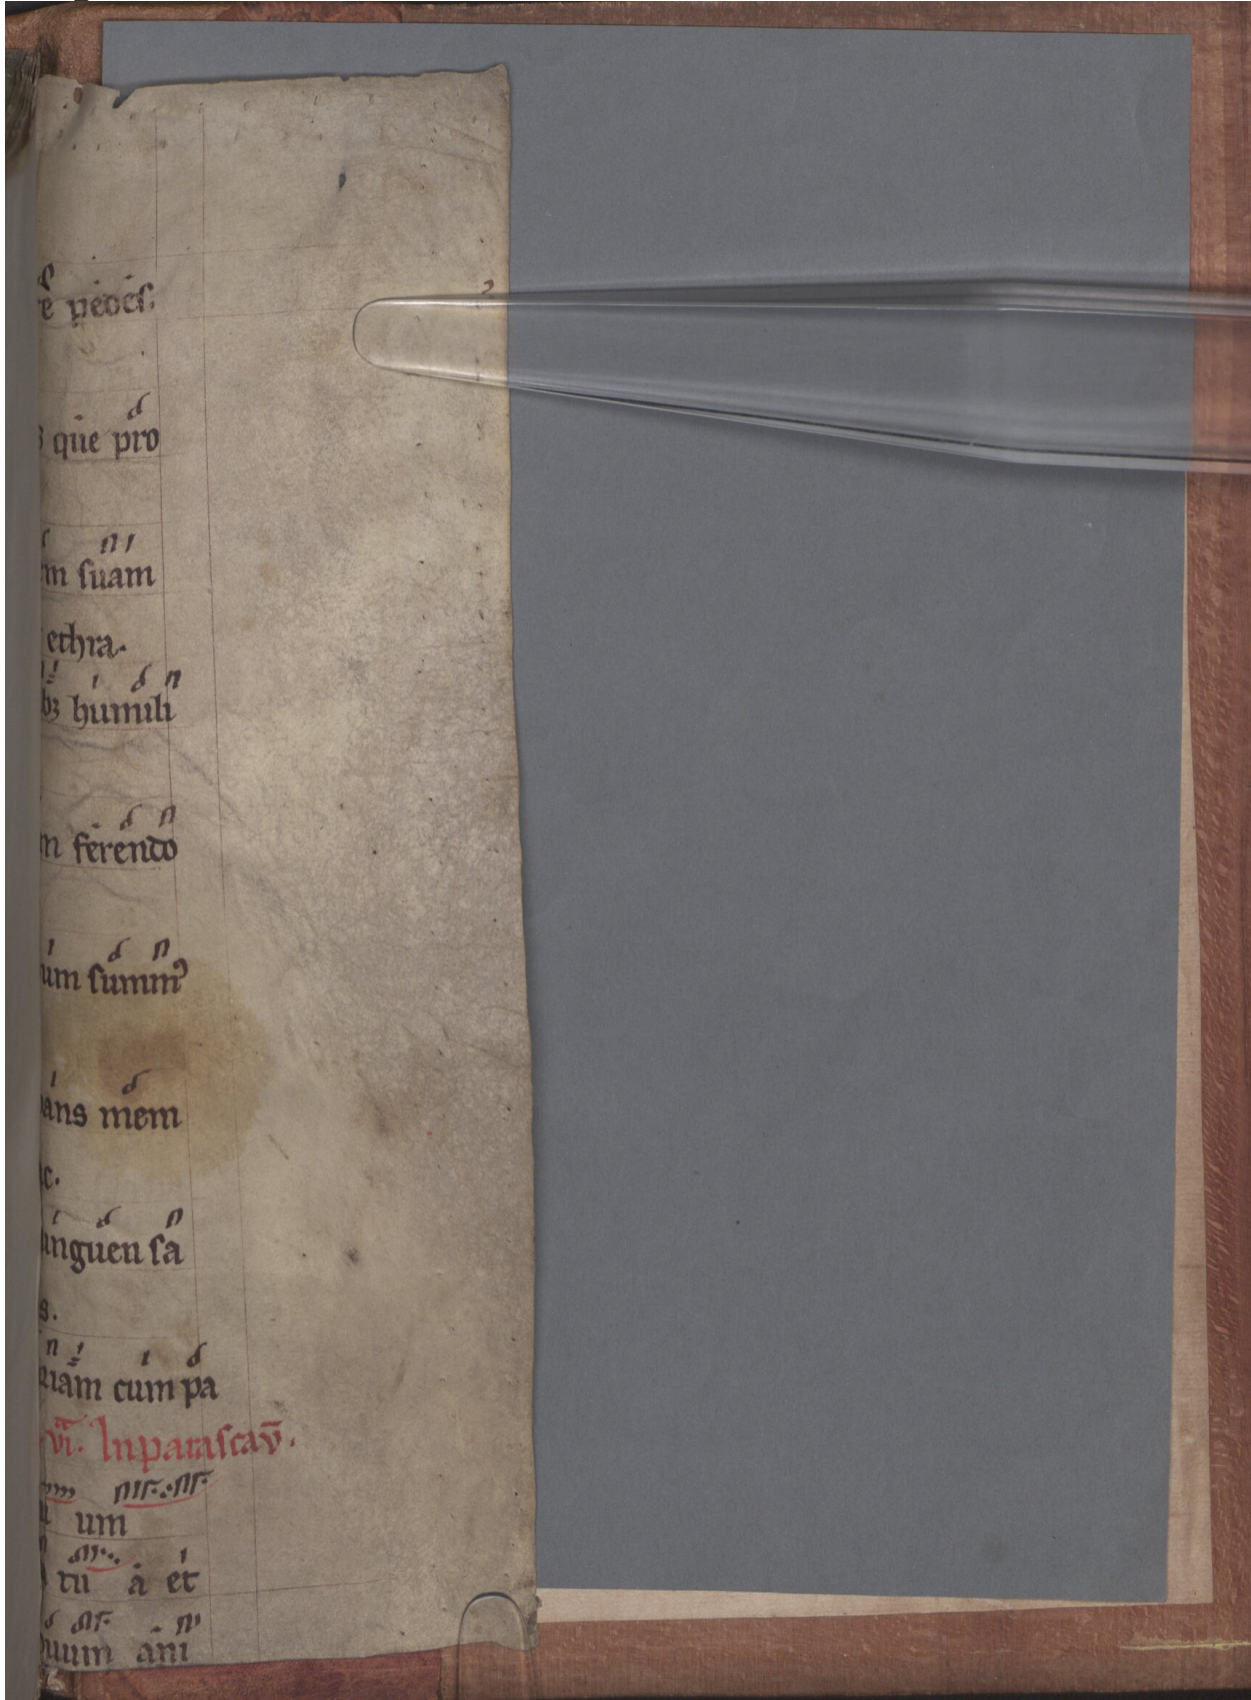 e pedes.
que pro
m suam
ethra.
bꝫ humili
m ferendo
um summꝰ
ans mem
c.
inguen sa
s.
riam cum pa
vi. In parascaṽ.
um
tu a et
uum ani